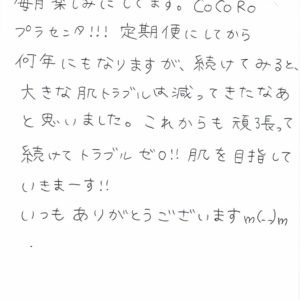 毎月楽しみにしてます。CoCoRo
プラセンタ!!! 定期便にしてから
何年にもなりますが、続けてみると、
大きな肌トラブルは減ってきたなあ
と思いました。これからも頑張って
続けてトラブルゼロ!! 肌を目指して
いきまーす!!
いつもありがとうございますm(_ _)m